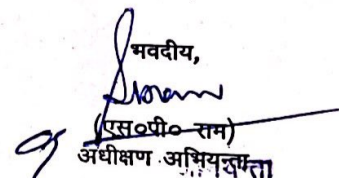 भवदीय,
(एस०पी० राम)
अधीक्षण अभियन्ता